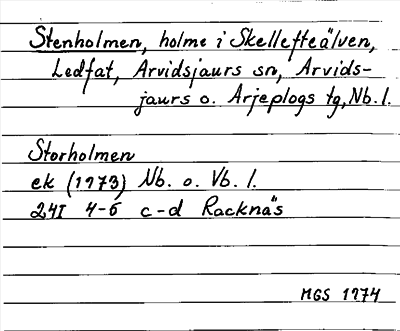 Stenholmen, holme i Skellefteälven,
Ledfat, Arvidsjaurs sn, Arvids-
jaurs o. Arjeplogs tg, Nb. l.
Storholmen
ek (1973) Nb. o. Vb. l.
24I 4-6 c-d Racknäs
MGS 1974